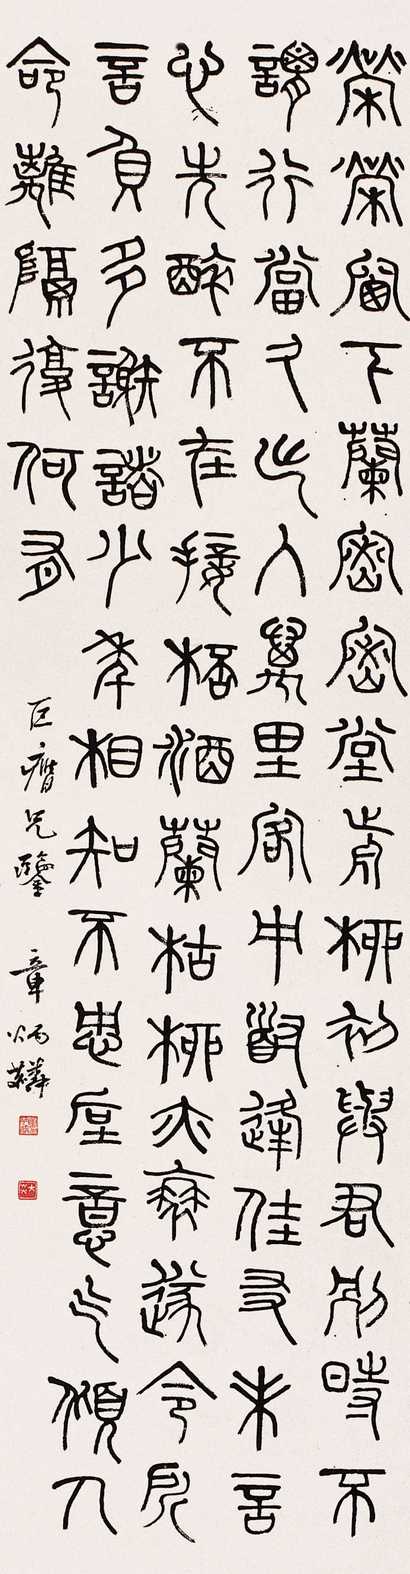 榮榮窗下蘭密密堂前柳初與君別時不
謂行當久出人萬里客中道逢佳友未言
心先醉不在接桮酒蘭枯柳亦衰遂令此
言負多謝諸少年相知不忠厚意氣傾人
命離隔復何有
巨兄鑒 章炳麟